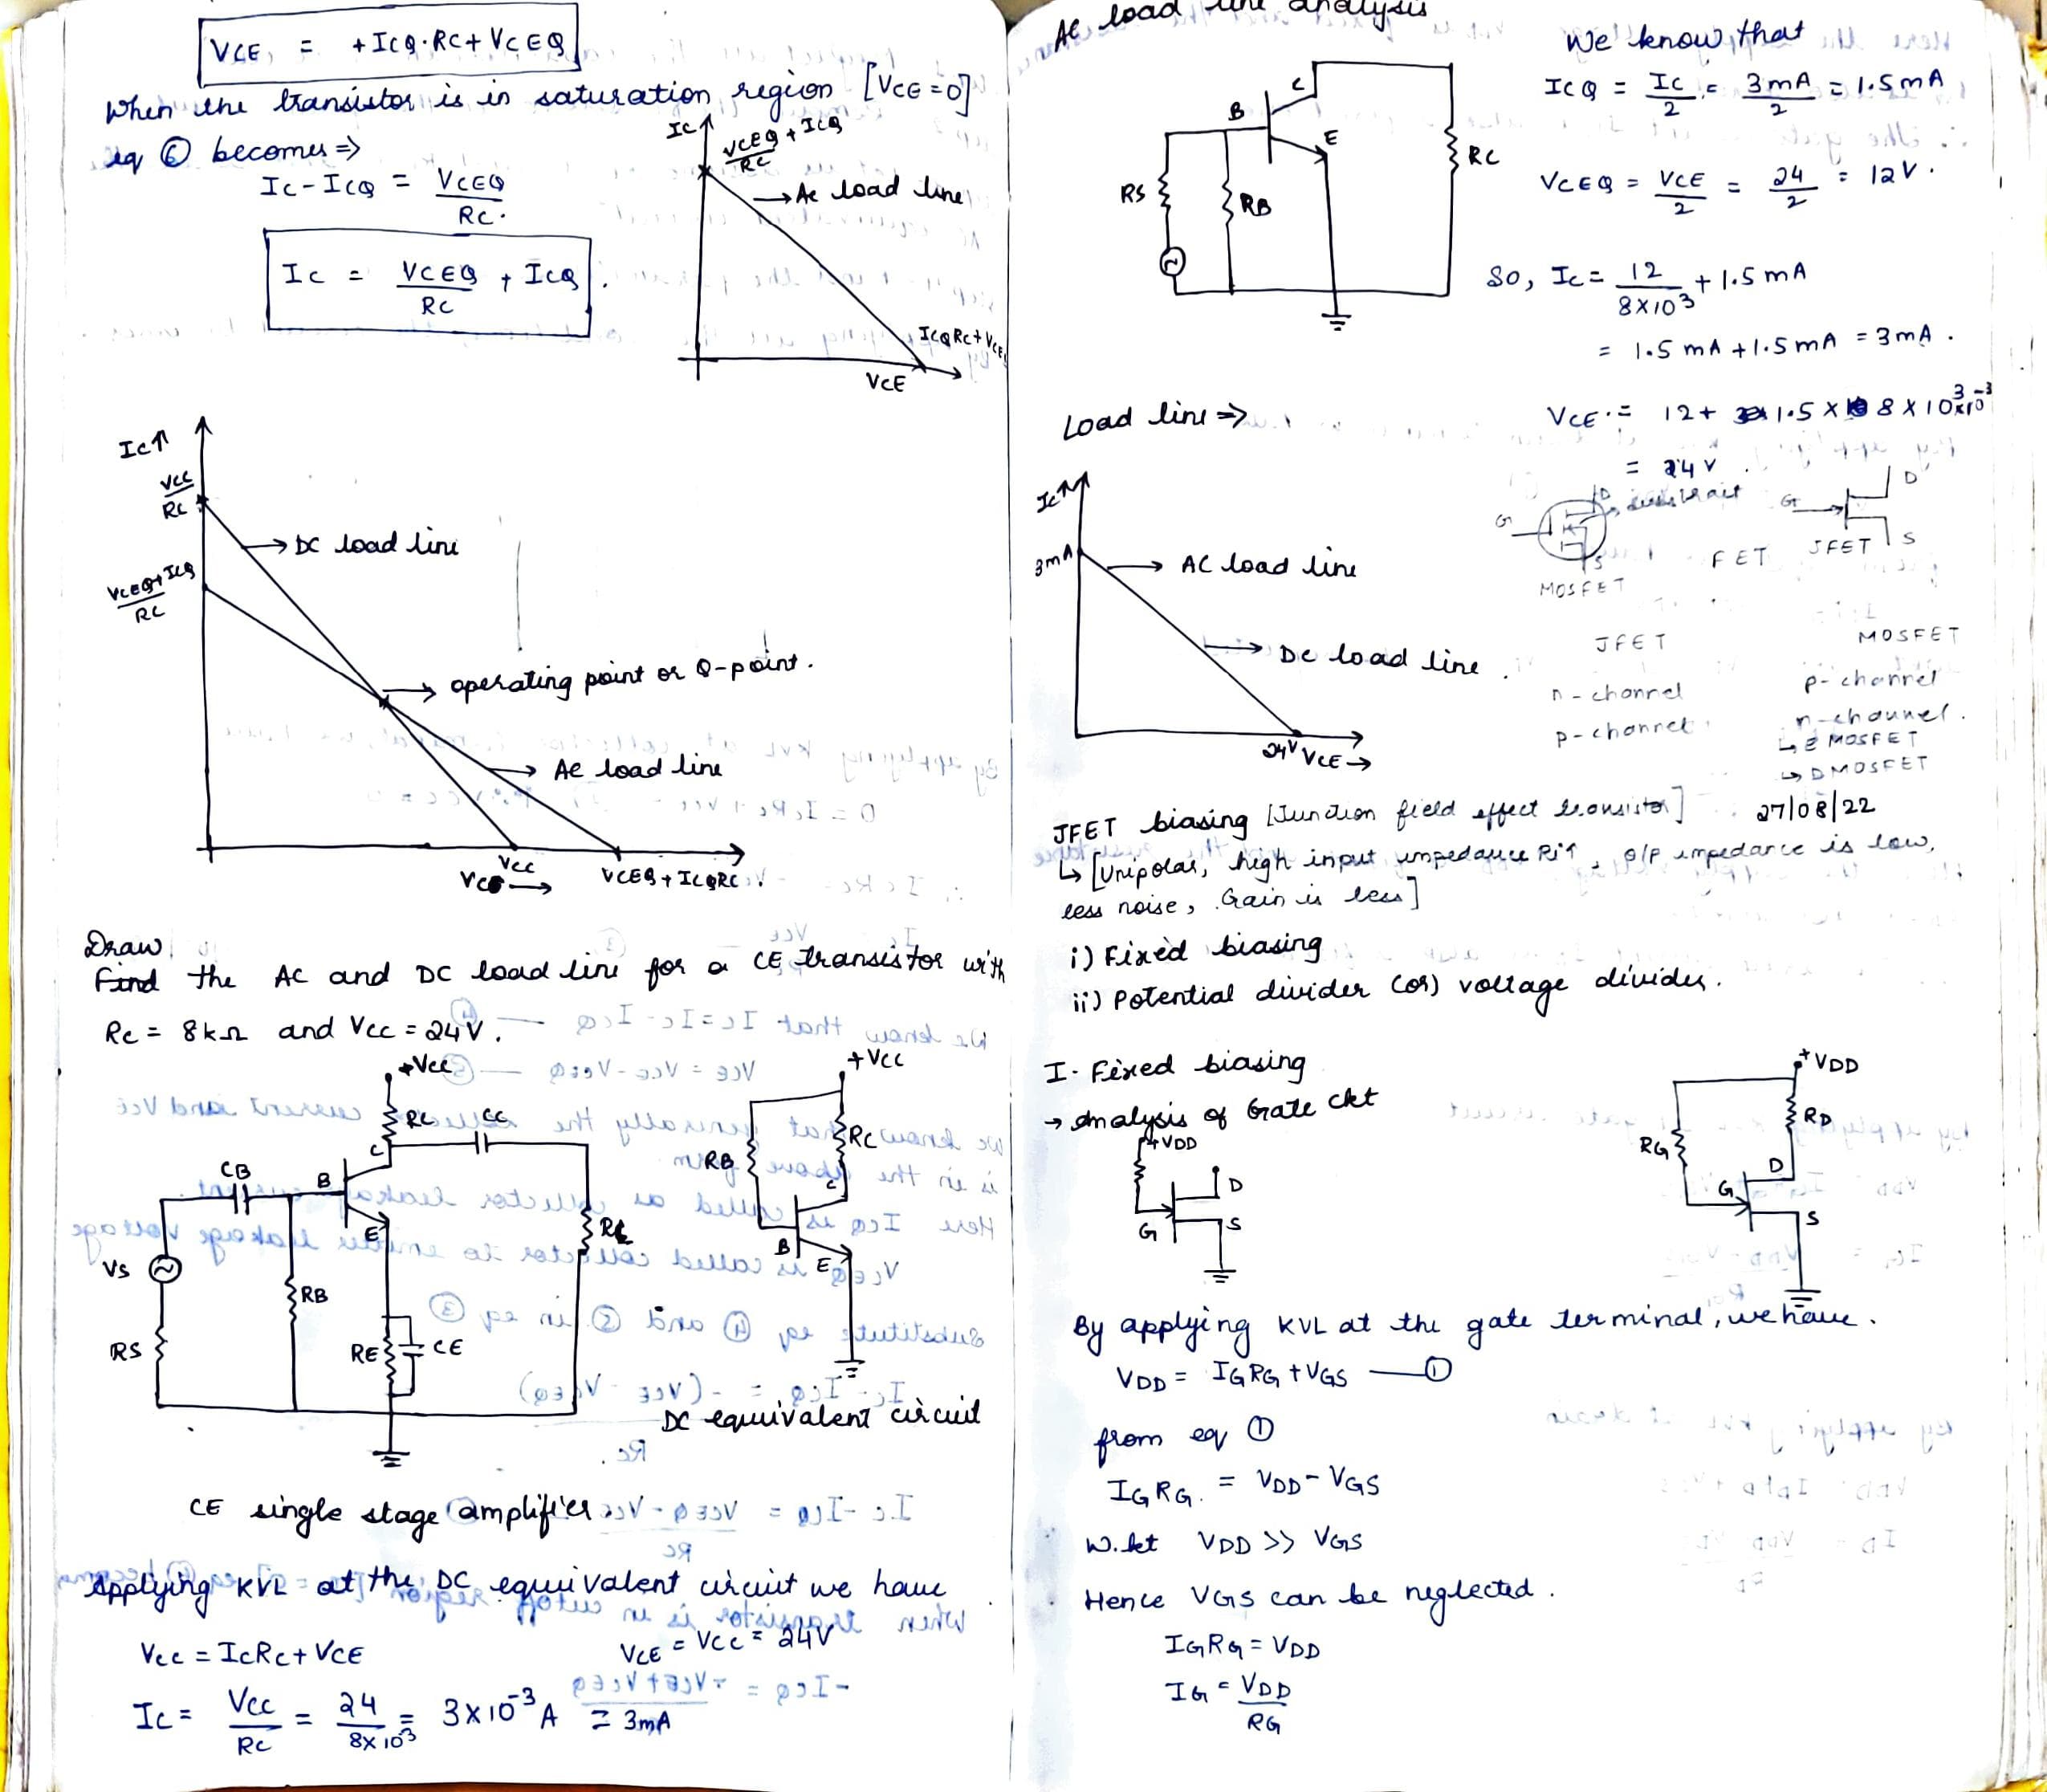 VCE = +ICQ·RC+VCEQ
When the transistor is in saturation region [VCE=0]
eq ⑥ becomes ⇒
IC-ICQ = VCEQ
RC.
IC = VCEQ + ICQ .
RC
IC↑
VCEQ + ICQ
RC
→ AC load line
ICQRC+VCE
VCE
IC↑
VCC
RC
→ DC load line
VCEQ+ICQ
RC
→ operating point or Q-point.
→ AC load line
VCC
VCE →
VCEQ+ICQRC.
Draw
Find the AC and DC load line for a CE transistor with
RC = 8kΩ and VCC = 24V.
+VCC
RC
CC
C
CB
B
E
VS
RB
RS
RE
CE
RL
+VCC
RC
RB
C
B
E
DC equivalent circuit
CE single stage amplifier.
Applying KVL at the DC equivalent circuit we have
VCC = ICRC+VCE
VCE = VCC = 24V
IC = VCC = 24 = 3x10-3 A = 3mA
RC 8x103
AC load line analysis
C
B
E
RS
RB
RC
We know that
ICQ = IC = 3mA = 1.5mA
2 2
VCEQ = VCE = 24 = 12V.
2 2
So, IC = 12 + 1.5 mA
8x103
= 1.5 mA + 1.5 mA = 3mA.
VCE = 12 + 1.5 x 8 x 103x10-3
= 24V.
Load line ⇒
IC↑
3mA
→ AC load line
→ DC load line.
24V
VCE →
G
D
S
MOSFET
FET
G
D
S
JFET
JFET
n-channel
p-channel
MOSFET
p-channel
n-channel.
↳ E MOSFET
↳ DMOSFET
27/08/22
JFET biasing [Junction field effect transistor]
↳ [Unipolar, high input impedance Ri↑, o/p impedance is low,
less noise, Gain is less]
i) Fixed biasing
ii) Potential divider (or) voltage divider.
I. Fixed biasing
→ Analysis of Gate ckt
+VDD
D
G
S
+VDD
RD
RG
D
G
S
By applying KVL at the gate terminal, we have.
VDD = IGRG + VGS — ①
from eq ①
IGRG. = VDD - VGS
W.kt VDD >> VGS
Hence VGS can be neglected.
IGRG = VDD
IG = VDD
RG